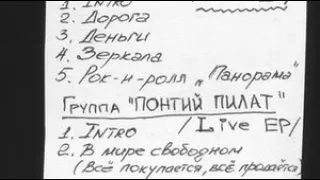 1. INTRO
2. Дорога
3. Деньги
4. Зеркала
5. Рок-н-ролл „Панорама"
Группа "ПОНТИЙ ПИЛАТ"
/Live EP/
1. INTRO
2. В мире свободном
(Всё покупается, всё продаётся)